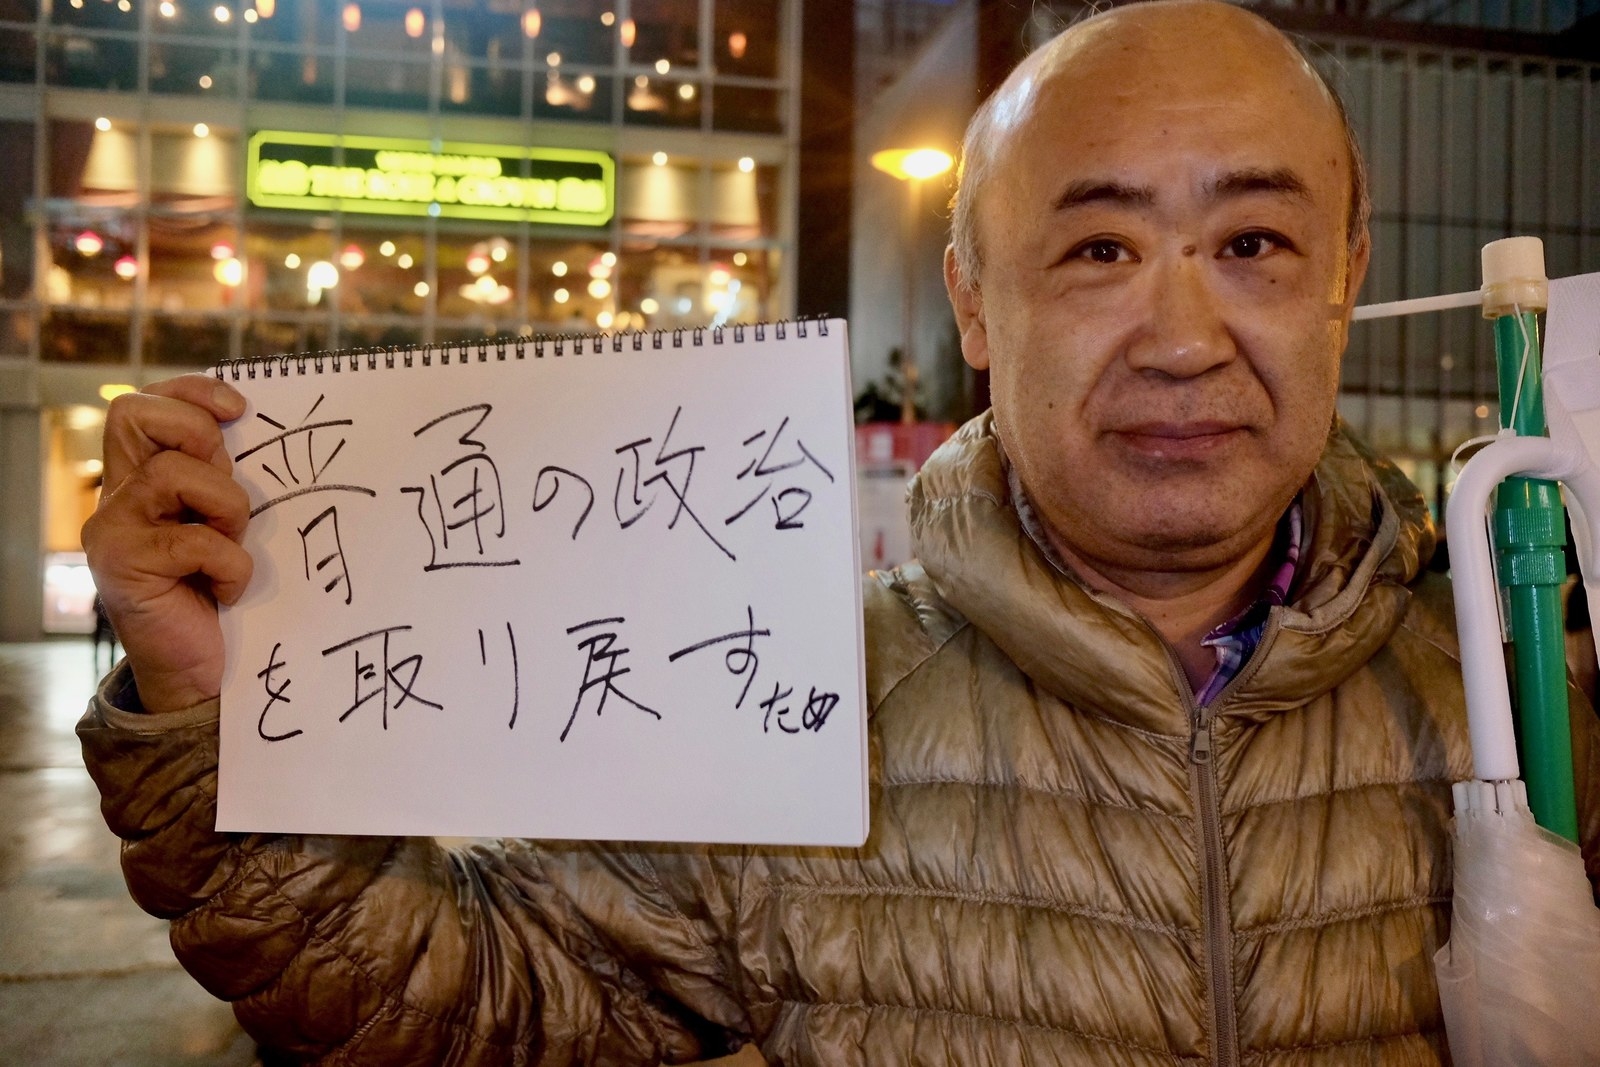 THE ROSE & CROWN
普通の政治
を取り戻す
ため